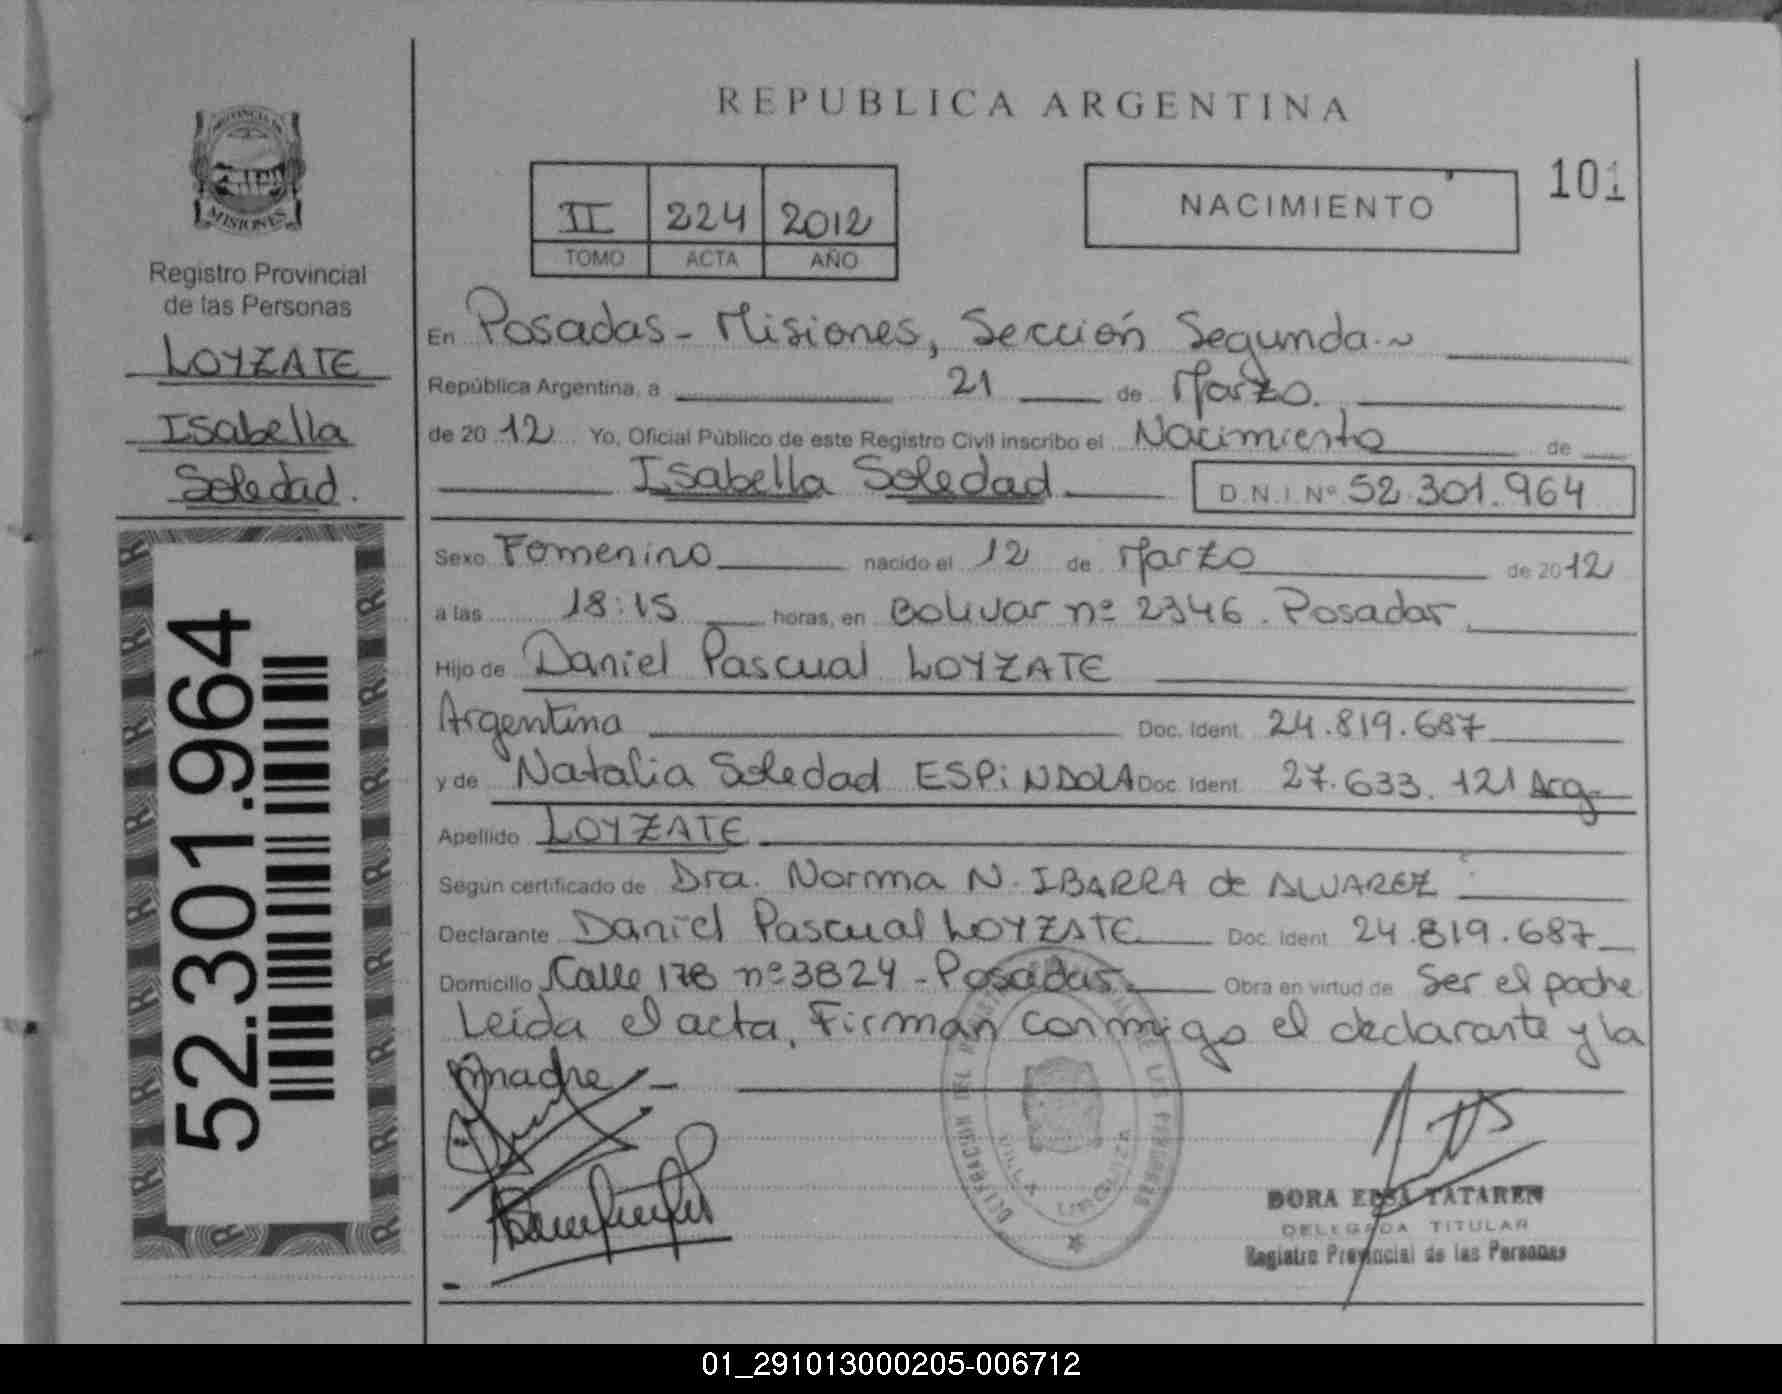 REPUBLICA ARGENTINA
PROVINCIA DE
MISIONES
Registro Provincial
de las Personas
LOYZATE
Isabella
Soledad.
52.301.964
II 224 2012
TOMO ACTA AÑO
NACIMIENTO
101
En Posadas - Misiones, Sección Segunda.~
República Argentina, a 21 de Marzo.
de 20 12 Yo, Oficial Público de este Registro Civil inscribo el Nacimiento de
Isabella Soledad D.N.I. Nº 52.301.964
Sexo Femenino nacido el 12 de Marzo de 2012
a las 18:15 horas, en Bolivar nº 2346. Posadas
Hijo de Daniel Pascual LOYZATE
Argentina Doc. Ident. 24.819.687
y de Natalia Soledad ESPiNDOLA Doc. Ident. 27.633.121 Arg.
Apellido LOYZATE
Según certificado de Dra. Norma N. IBARRA de ALVAREZ
Declarante Daniel Pascual LOYZATE Doc. Ident. 24.819.687
Domicilio Calle 178 nº 3824 - Posadas. Obra en virtud de Ser el padre
Leída el acta, Firman conmigo el declarante y la
madre
DELEGACION DEL REGISTRO DE LAS PERSONAS
VILLA URQUIZA
DORA ELSA TATAREN
DELEGADA TITULAR
Registro Provincial de las Personas
01_291013000205-006712